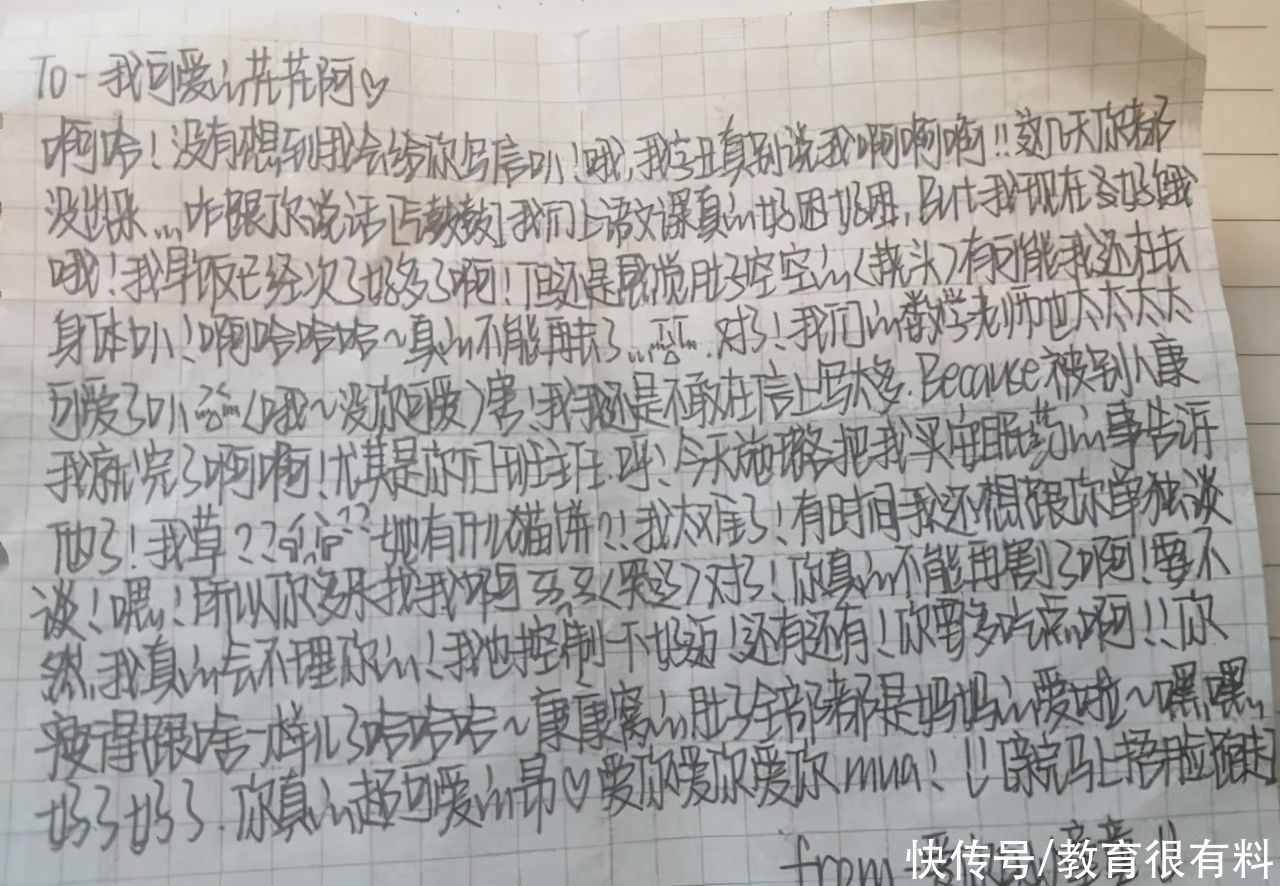 To-我可爱的花花阿♡
啊哈!没有想到我会给你写信叭!哦,我字丑真别说我啊啊啊!!这几天你都
没出来...咋跟你说话[气鼓鼓]我们上语文课真的好困好困,But我现在多好饿
哦!我早饭已经次了好多了啊!但还是感觉肚子空空的(挠头)有可能我还在长
身体叭!啊哈哈哈~真的不能再长了...对了!我们的数学老师他太太太太
可爱了叭(哦~没你可爱)害!我我还是不敢在信上写太多.Because被别人康
我就完了啊啊!尤其是你们班班主任.呼!今天施璐把我买安眠药的事告诉
他了!我草??她有什么猫饼?!我太难了!有时间我还想跟你单独谈
谈!嘿!所以你多来找我啊(哭泣)对了!你真的不能再割了啊!要不
然,我真的会不理你的!我也控制一下好迈!还有还有!你要多吃点啊!!你
瘦得跟啥一样儿了哈哈哈~康康窝的肚子全部都是妈妈的爱啦~嘿嘿
好了好了.你真的超可爱的昂♡爱你爱你爱你mua!!马上捂脸[跑走]
from
快传号/教育很有料